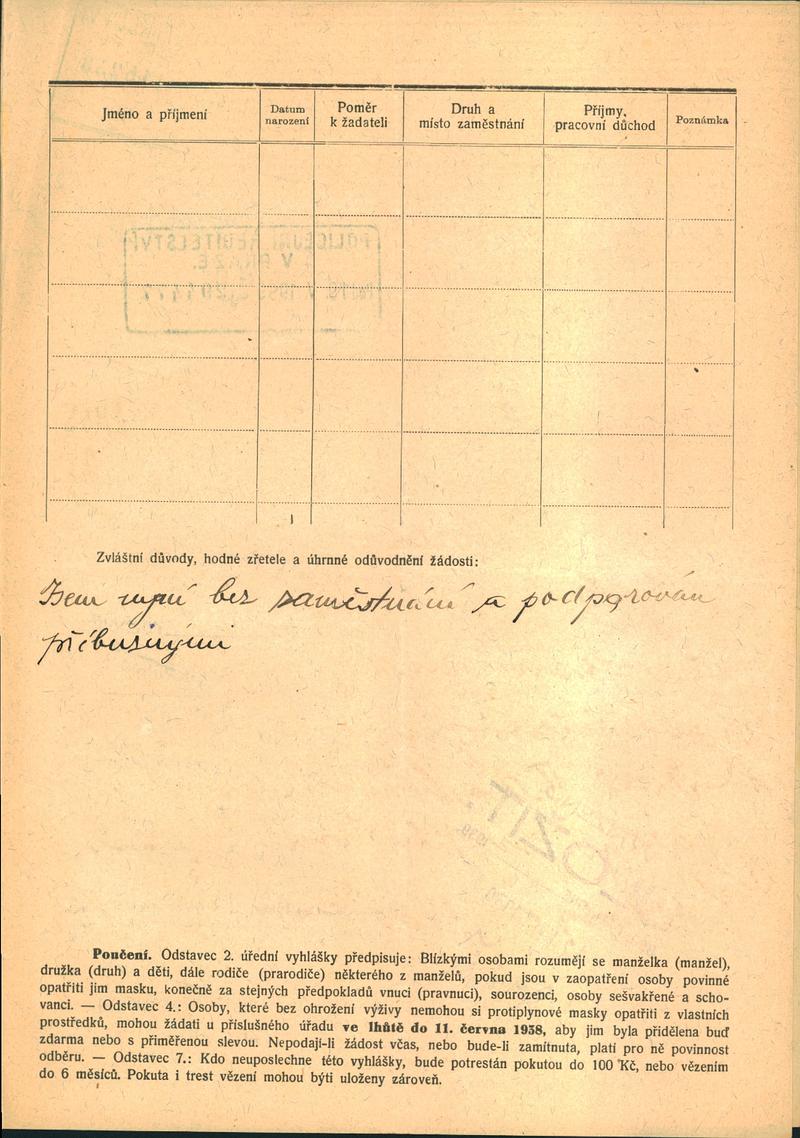 Jméno a příjmení
Datum
narození
Poměr
k žadateli
Druh a
místo zaměstnání
Příjmy,
pracovní důchod
Poznámka
POLICEJNÍ ŘEDITELSTVÍ
V PRAZE.
Zvláštní důvody, hodné zřetele a úhrnné odůvodnění žádosti:
Jsem nyní bez zaměstnání a podporován
příbuznými
ZIT.
Poučení. Odstavec 2. úřední vyhlášky předpisuje: Blízkými osobami rozumějí se manželka (manžel),
družka (druh) a děti, dále rodiče (prarodiče) některého z manželů, pokud jsou v zaopatření osoby povinné
opatřiti jim masku, konečně za stejných předpokladů vnuci (pravnuci), sourozenci, osoby sešvakřené a scho-
vanci. — Odstavec 4.: Osoby, které bez ohrožení výživy nemohou si protiplynové masky opatřiti z vlastních
prostředků, mohou žádati u příslušného úřadu ve lhůtě do 11. června 1938, aby jim byla přidělena buď
zdarma nebo s přiměřenou slevou. Nepodají-li žádost včas, nebo bude-li zamítnuta, platí pro ně povinnost
odběru. — Odstavec 7.: Kdo neuposlechne této vyhlášky, bude potrestán pokutou do 100 Kč, nebo vězením
do 6 měsíců. Pokuta i trest vězení mohou býti uloženy zároveň.